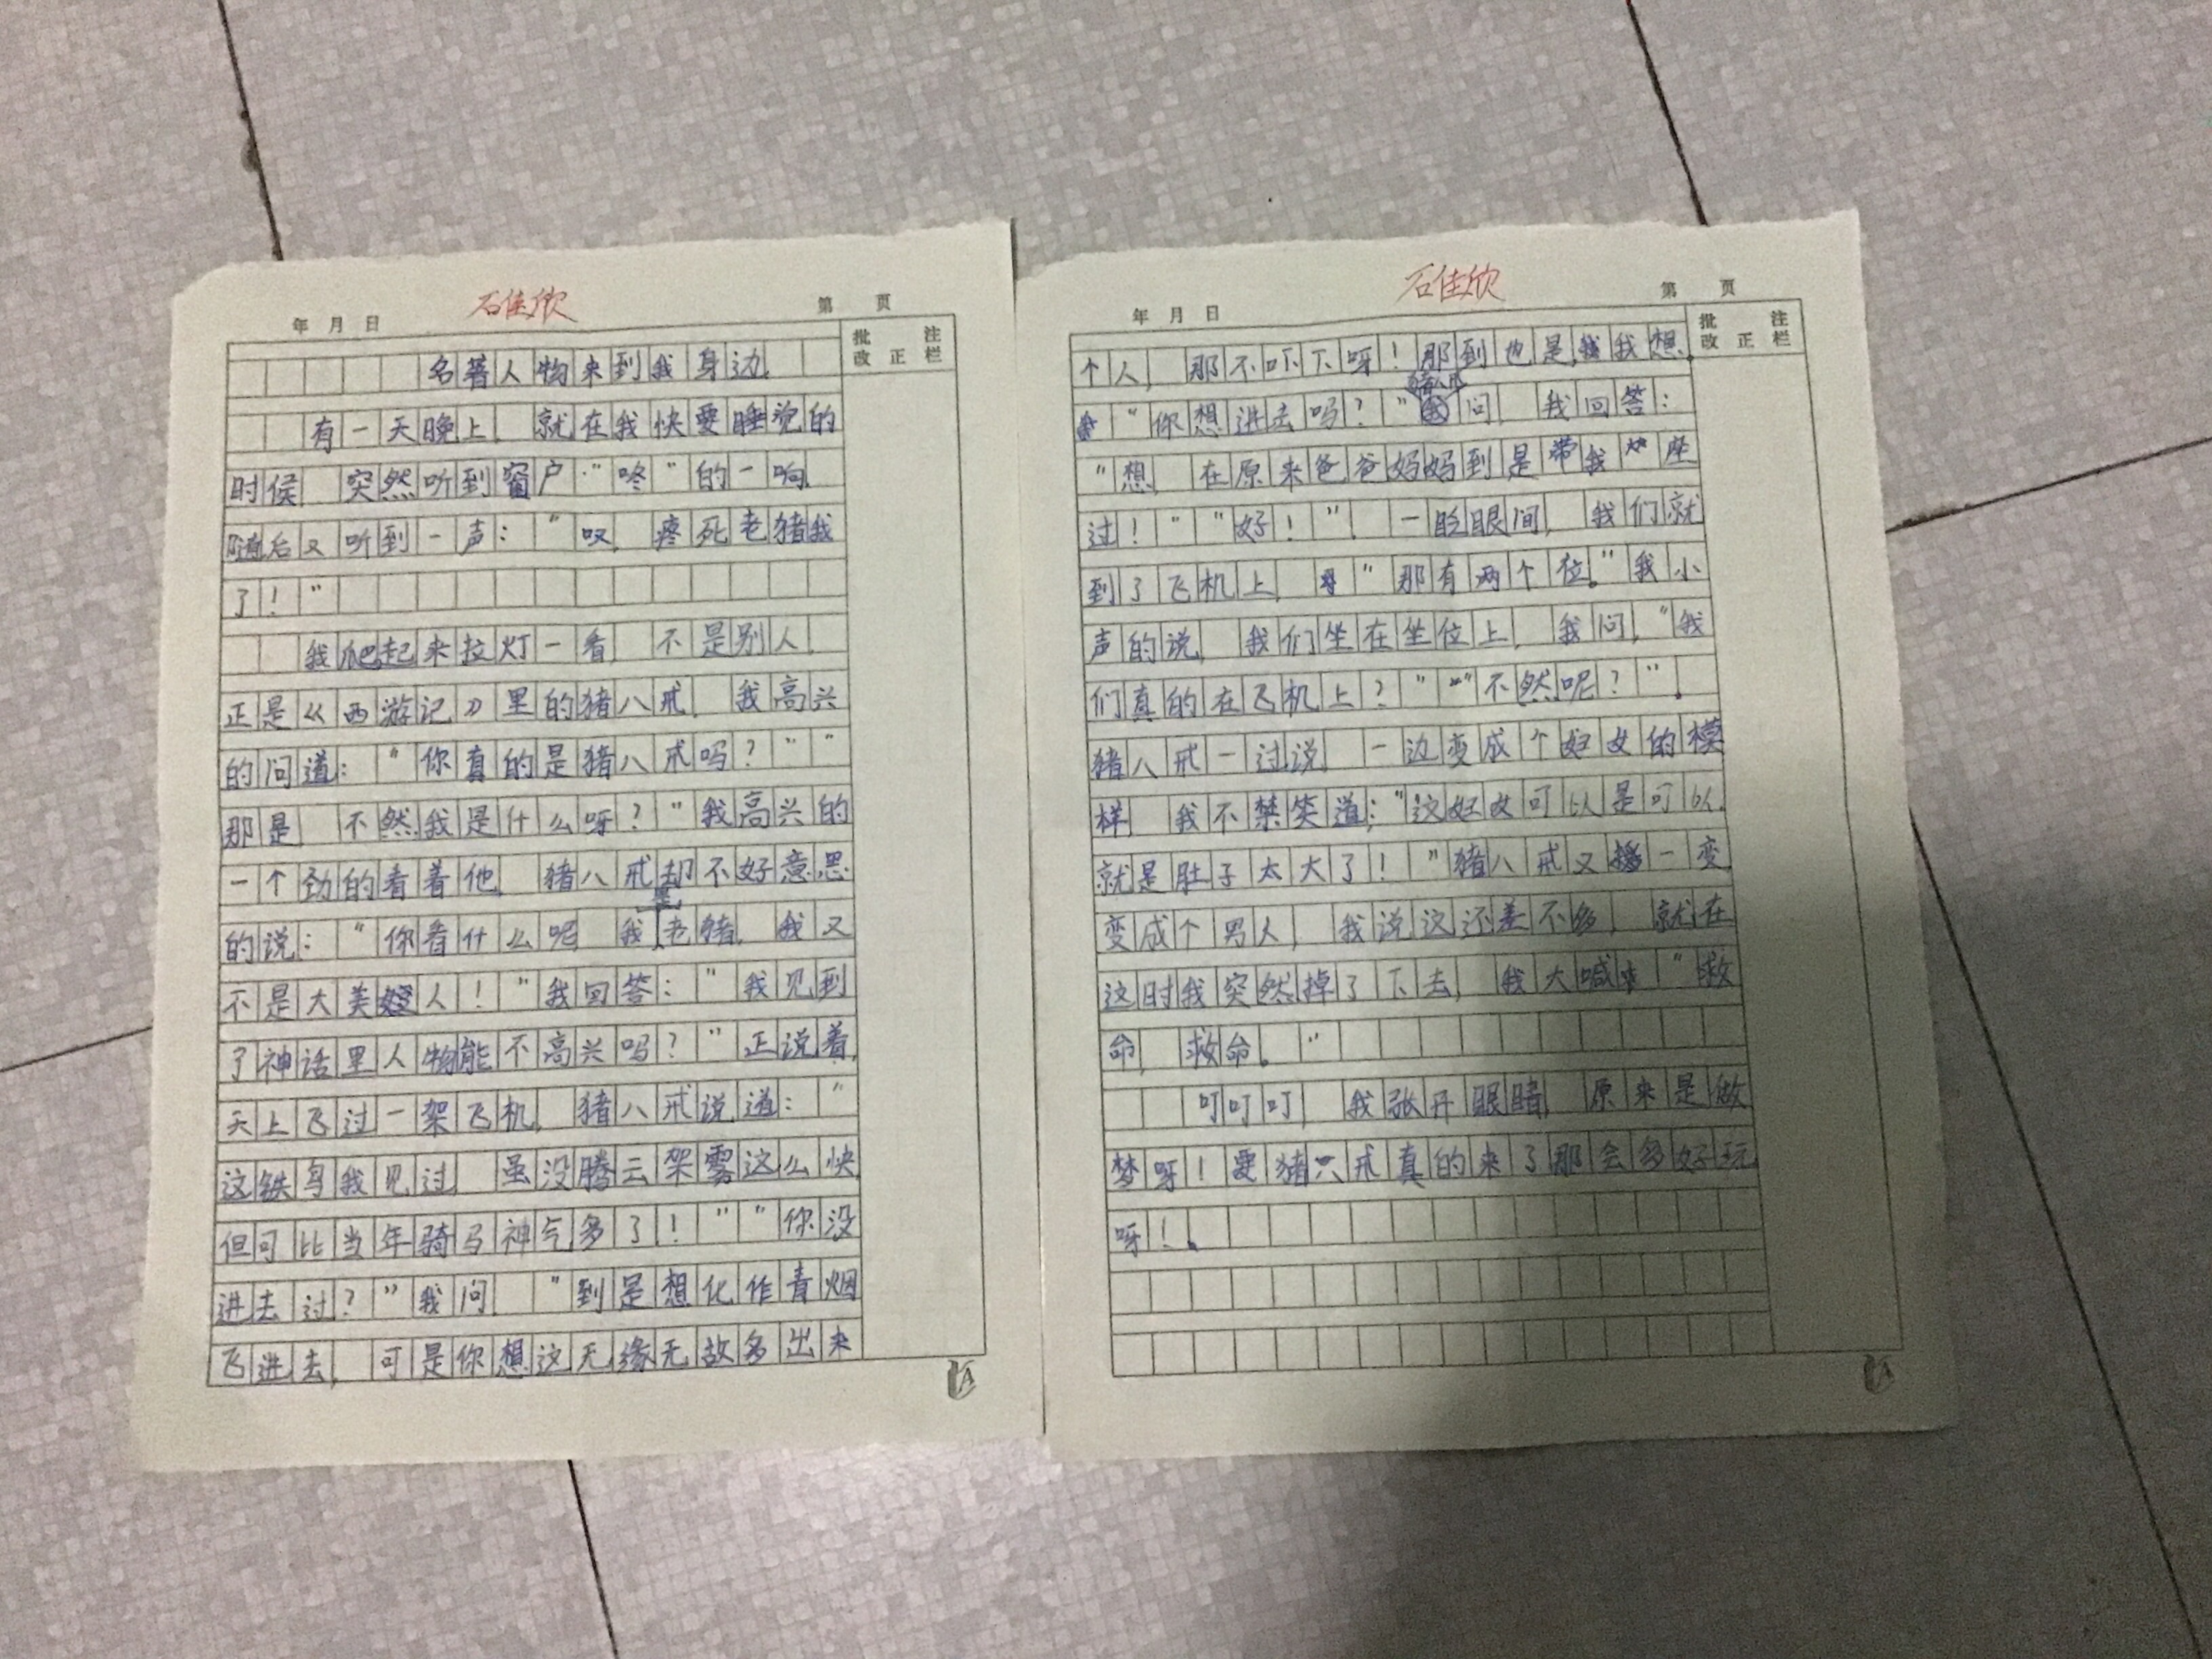 石佳欣
年 月 日 第 页
批 注
改 正 栏
名著人物来到我身边
有一天晚上,就在我快要睡觉的
时候,突然听到窗户“咚”的一响,
随后又听到一声:“哎,疼死老猪我
了!”
我爬起来拉灯一看,不是别人,
正是《西游记》里的猪八戒,我高兴
的问道:“你真的是猪八戒吗?”“
那是,不然我是什么呀?”我高兴的
一个劲的看着他,猪八戒却不好意思
的说:“你看什么呢,我是老猪,我又
不是大美人!”我回答:“我见到
了神话里人物能不高兴吗?”正说着,
天上飞过一架飞机,猪八戒说道:“
这铁鸟我见过,虽没腾云架雾这么快,
但可比当年骑马神气多了!”“你没
进去过?”我问,“到是想化作青烟
飞进去,可是你想这无缘无故多出来
石佳欣
年 月 日 第 页
批 注
改 正 栏
个人,那不吓下呀!那到也是,我想,
“你想进去吗?”猪八戒问,我回答:
“想,在原来爸爸妈妈到是带我座
过!”“好!”,一眨眼间,我们就
到了飞机上,“那有两个位。”我小
声的说,我们坐在坐位上,我问,“我
们真的在飞机上?”“不然呢?”。
猪八戒一过说,一边变成个妇女的模
样,我不禁笑道:“这妇女可以是可以,
就是肚子太大了!”猪八戒又一变,
变成个男人,我说这还差不多,就在
这时我突然掉了下去,我大喊“救
命,救命。”
叮叮叮,我张开眼睛,原来是做
梦呀!要猪八戒真的来了那会多好玩
呀!。